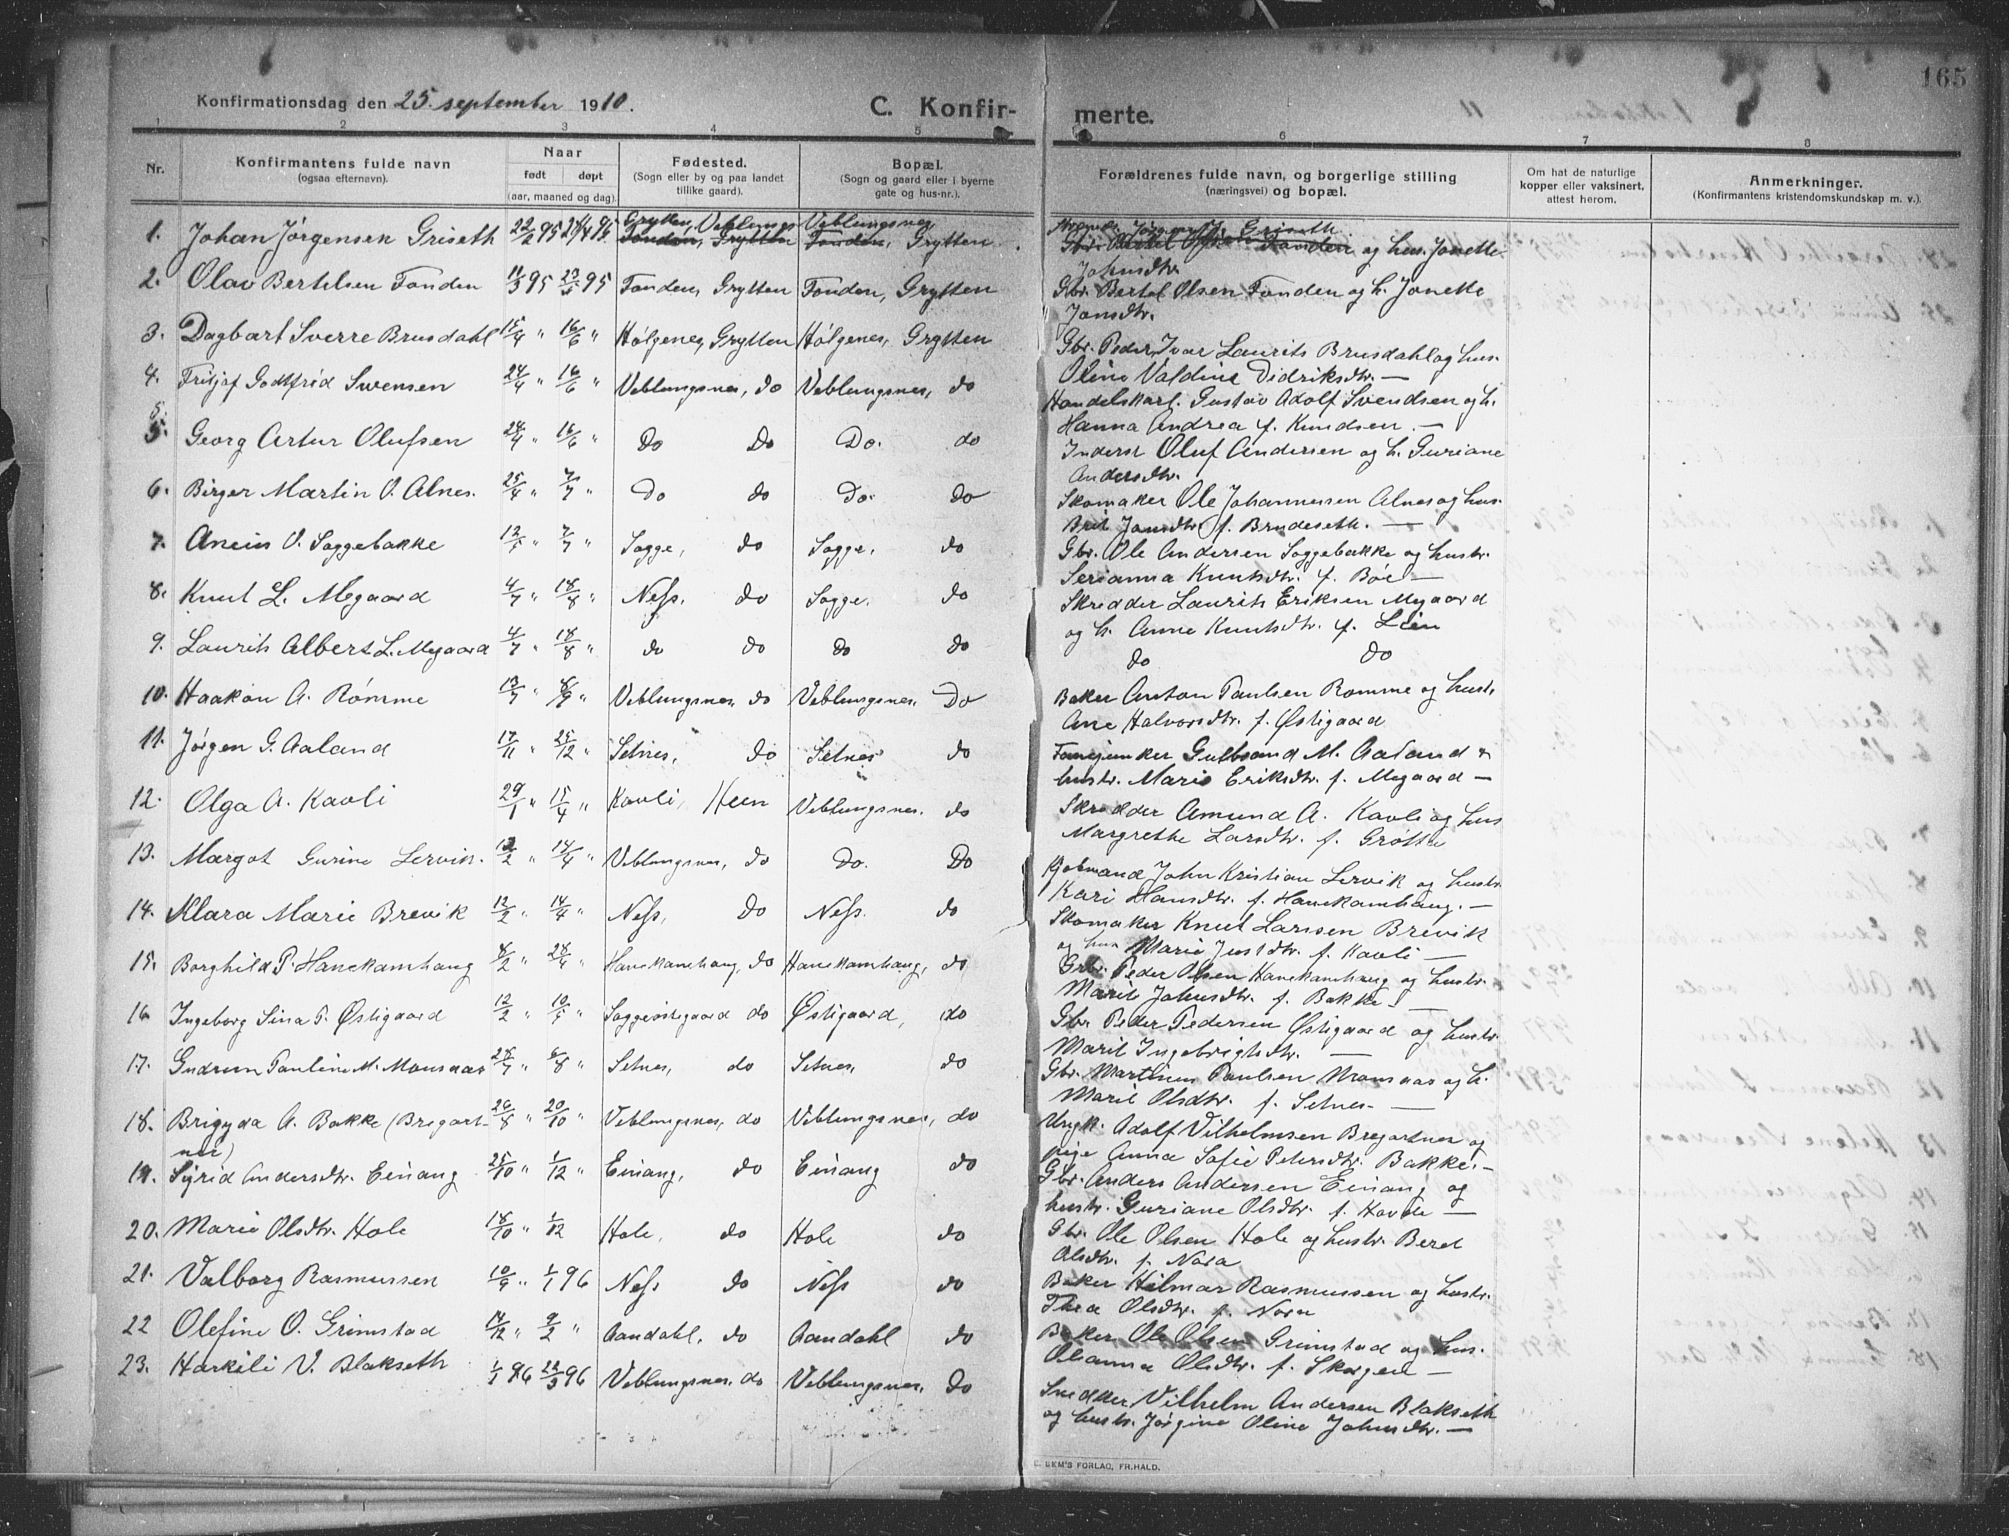 165
Konfirmationsdag den 25. september 1910.
C. Konfir- merte.
1 2 3 4 5 6 7 8
Nr. Konfirmantens fulde navn (ogsaa efternavn). Naar født døpt (aar, maaned og dag). Fødested. (Sogn eller by og paa landet tillike gaard). Bopæl. (Sogn og gaard eller i byerne gate og hus-nr.). Forældrenes fulde navn, og borgerlige stilling (næringsvei) og bopæl. Om hat de naturlige kopper eller vaksinert, attest herom. Anmerkninger. (Konfirmantens kristendomskundskap m. v.).
1. Johan Jørgensen Griseth 22/2 95 21/4 95 Grytten, Veblungsnes Fonden, Grytten Veblungsnes Fonden, Grytten. Jørgen Griseth Gbr. Bertel Olsen Fonden og hus. Jonette
Johnsdtr.
2. Olav Bertelsen Fonden 11/3 95 23/5 95 Fonden, Grytten Fonden, Grytten Gbr. Bertel Olsen Fonden og h. Jonette
Jonsdtr.
3. Dagbart Sverre Brusdahl 15/4 " 16/6 " Holgenes, Grytten Holgenes, Grytten Gbr. Peder Ivar Laurits Brusdahl og hus.
Oline Valdine Didriksdtr. —
4. Fritjof Godtfrid Swensen 24/4 " 16/6 " Veblungsnes, do Veblungsnes, do Handelskarl. Gustav Adolf Svendsen og h.
Hanna Andrea f. Knudsen. —
5. Georg Artur Olufsen 28/4 " 16/6 " Do Do Do. do Inderst Oluf Andersen og h. Guriane
Andersdtr.
6. Birger Martin O. Alnes. 25/4 " 7/7 " Do do Do. do Skomaker Ole Johannessen Alnes og hus.
Brit Jonsdtr. f. Brudeseth. —
7. Anein O. Soggebakke 12/5 " 7/7 " Sogge, do Sogge, do Gbr. Ole Andersen Soggebakke og hustr.
Serianna Knutsdtr. f. Bøe —
8. Knut L. Megaard 4/7 " 18/8 " Ness. do Sogge. do Skredder Laurits Eriksen Megaard
og h. Anne Knutsdtr. f. Lien
9. Laurits Albert L. Megaard 4/7 " 18/8 " do do do do do do
10. Haakon A. Rømme 13/7 " 8/9 " Veblungsnes, do Veblungsnes, Do Baker Anton Paulsen Romme og hust.
Ane Halvorsdtr. f. Østigaard
11. Jørgen G. Aaland 17/11 " 25/12 " Setnes, do Setnes do Fanejunker Gulbrand M. Aaland &
hustr. Marie Eriksdtr. f. Megaard —
12. Olga A. Kavli 29/1 " 15/4 " Kavli, Heen Veblungsnes. do Skredder Amund A. Kavli og hus
Margrethe Larsdtr. f. Grøtta
13. Margot Gurine Lervik. 12/2 " 14/4 " Veblungsnes, do Do. Do John Kristian Lervik og hustr.
Kari Hansdtr. f. Hanekamhaug. —
14. Klara Marie Brevik 12/2 " 14/4 " Ness, Do Ness. do Skomaker Knut Larsen Brevik
og hus Marie Justdtr. f. Kavli —
15. Borghild P. Hanekamhaug 8/2 " 28/4 " Hanekamhaug, do Hanekamhaug, do Gbr. Peder Olsen Hanekamhaug og hustr.
Marit Johnsdtr. f. Bakke —
16 Ingeborg Sina P. Østigaard 12/2 " 10/5 " Soggeøstegaard do Østigaard, do Gbr Peder Pedersen Østigaard og hustr.
Marit Ingebrigtsdtr. —
17. Gudrun Pauline M. Monsaas 28/7 " 6/8 " Setnes, do Setnes, do Gbr. Martinus Paulsen Monsaas og h.
Marit Olsdtr. f. Setnes. —
18. Brigyda A. Bakke (Bregart- 26/8 " 20/10 " Veblungsnes, do Veblungsnes, do Ungk. Adolf Vilhelmsen Bregartner og
ner) pige Anna Sofie Petersdtr. Bakke. —
19. Sigrid Andersdtr. Einang 25/10 " 1/12 " Einang, do Einang do Gbr. Anders Andersen Einang og
hustr. Guriane Olsdtr. f. Havde —
20. Marie Olsdtr. Hole 18/10 " 1/12 Hole, do Hole do Gbr. Ole Olsen Hole og hustr. Beret
Olsdtr. f. Nora
21. Valborg Rasmussen 10/9 " 1/1 96 Ness do Ness do Baker Hilmar Rasmussen og hustr.
Thea Olsdtr. f. Nora
22 Olefine O. Grimstad 14/12 " 9/2 " Aandahl, do Aandahl do Baker Ole Olsen Grimstad og hus.
Olianna Olsdtr. f. Skogen —
23. Harkili V. Blakseth 1/1 96 22/3 96 Veblungsnes. do Veblungsnes. Do Snedker Vilhelm Andersen Blakseth
og hustr. Jørgine Oline Johnsdtr. —
FORLAG, FR.HALD.